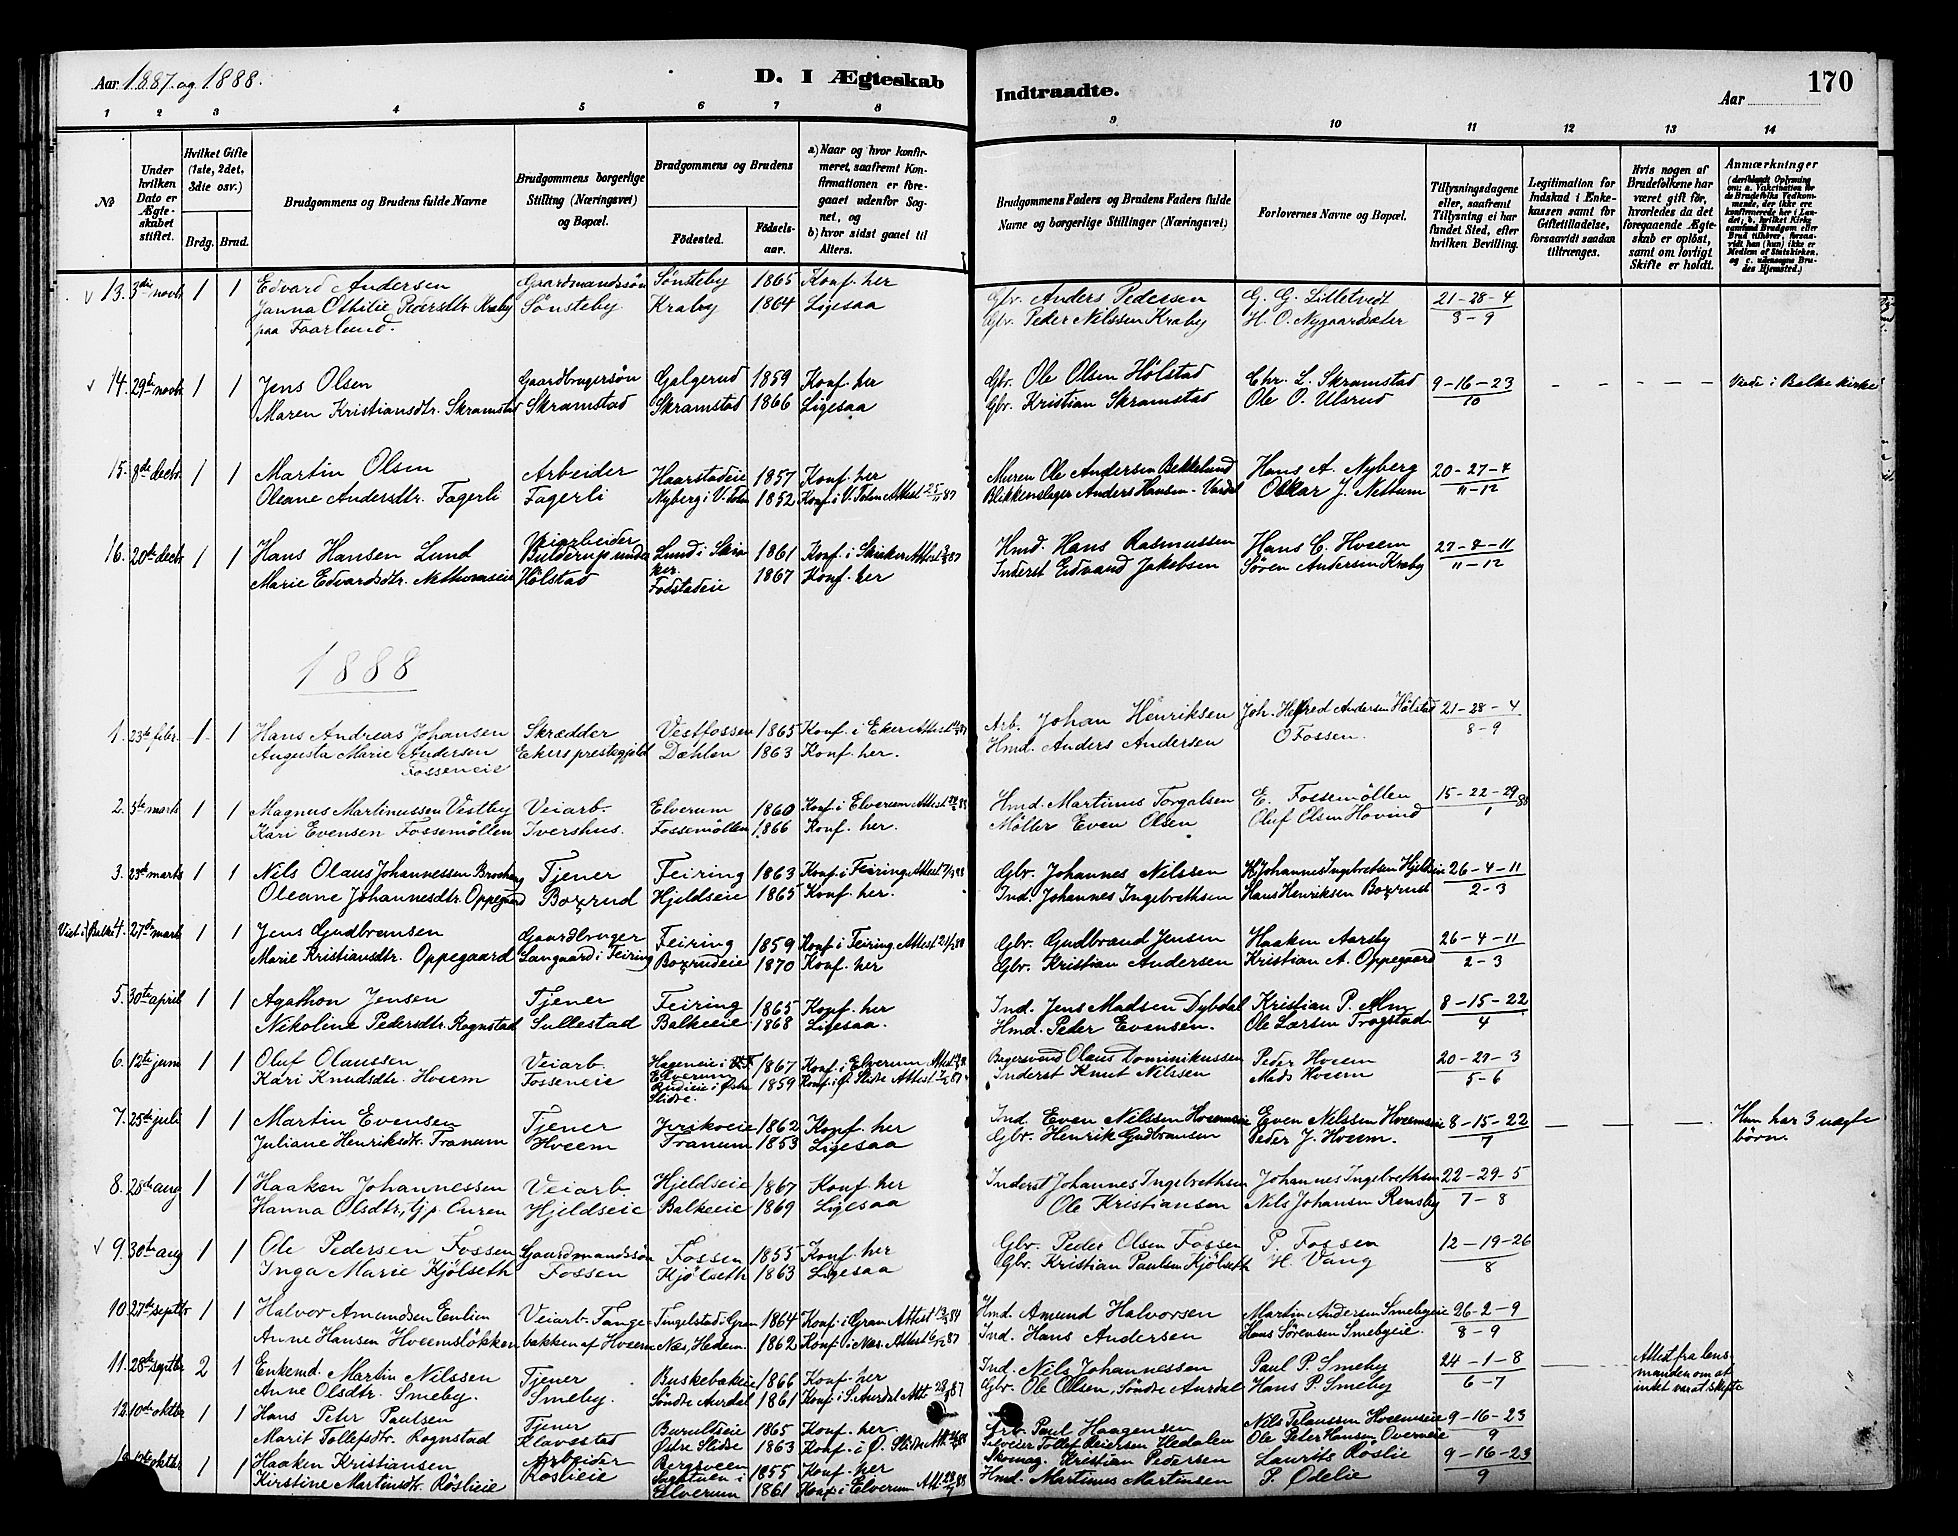 Aar 1887 og 1888.
D. I Ægteskab
Indtraadte.
Aar
170
1 2 3 4 5 6 7 8 9 10 11 12 13 14
№
Under hvilken Dato er Ægteskabet stiftet.
Hvilket Gifte (1ste, 2det, 3die osv.)
Brdg. Brud.
Brudgommens og Brudens fulde Navne
Brudgommens borgerlige Stilling (Næringsvei) og Bopæl.
Brudgommens og Brudens
Fødested.
Fødselsaar.
a) Naar og hvor konfirmeret, saafremt Konfirmationen er foregaaet udenfor Sognet, og
b) hvor sidst gaaet til Alters.
Brudgommens Faders og Brudens Faders fulde Navne og borgerlige Stillinger (Næringsvei)
Forlovernes Navne og Bopæl.
Tillysningsdagene eller, saafremt Tillysning ei har fundet Sted, efter hvilken Bevilling.
Legitimation for Indskud i Enkekassen samt for Giftetilladelse, forsaavidt saadan tiltrænges.
Hvis nogen af Brudefolkene har været gift før, hvorledes da det foregaaende Ægteskab er opløst, samt om lovligt Skifte er holdt.
Anmærkninger
(deriblandt Oplysning om: a. Vakcination for de Brudefolks Vedkommende, der ikke ere konfirmerede her i Landet; b. hvilket Kirkesamfund Brudgom eller Brud tilhører, forsaavidt han (hun) ikke er Medlem af Statskirken, og c. udensogns Brudes Hjemsted.)
13. 3die novb 1 1 Edvard Andersen Gaardmandssøn Sønsteby 1865 Konf. her Gbr. Anders Pedersen G. G. Lilletvedt 21-28-4
Janna Othilie Pedersdtr. Kraby Sønsteby Kraby 1864 Ligesaa Gbr. Peder Nilssen Kraby H. O. Nygaardsæter 3-9
paa Faarlund.
14. 29de novb 1 1 Jens Olsen Gaardbrugersøn Galgerud 1859 Konf. her Gbr. Ole Olsen Hölstad Chr. L. Skramstad 9-16-23 Viede i Balke kirke
Maren Kristiansdtr. Skramstad Skramstad Skramstad 1866 Ligesaa Gbr. Kristian Skramstad Ole O. Ulsrud 10
15. 8de decbr 1 1 Martin Olsen Arbeider Haarstadeie 1857 Konf. her Muren Ole Andersen Bekkelund Hans A. Nyberg 20-27-4
Oleane Andersdtr. Fagerli Fagerli Nyberg i V. Toten 1852 Konf. i V. Toten Attest 25/11 87 Blikkenslager Anders Hansen - Vardal Oskar J. Nettum 11-12
16. 20de decbr 1 1 Hans Hansen Lund Veiarbeider Lund i Skiaker. 1861 Konf. i Skiaker Attest 87 Hmd. Hans Rasmussen Hans C. Hveem 27-4-11
Marie Edvardsdtr. Nethovseie Hölstad Fodstadeie 1867 Konf. her Inderst Edvard Jakobsen Søren Andersen Kraby 11-12
1888
1. 23de febr. 1 1 Hans Andreas Johansen Skrædder Vestfossen 1865 Konf. i Eker Attest Arb. Johan Henriksen Joh. Helfred Andersen Hölstad 21-28-4
Augusta Marie Andersen Ekers prestegjeld Dæhlen 1863 Konf. her. Hmd. Anders Andersen O Fossen. 8-9
Fosseneie
2. 5te marts 1 1 Magnus Martinussen Vestby Veiarb. Elverum 1860 Konf. i Elverum Attest Hmd. Martinus Torgalsen E. Fossemöllen 15-22-29
Kari Evensen Fossemöllen Ivershus. Fossemöllen 1866 Konf. her. Möller Even Olsen Oluf Olsen Hovind 1 88
3. 23de marts 1 1 Nils Olaus Johannessen Brochaug Tjener Feiring 1863 Konf. i Feiring Attest Gbr. Johannes Nilssen H Johannes Ingebretsen Hjeldseie 26-4-11
Oleane Johannesdtr. Oppegaard Boxrud Hjeldseie 1865 Konf. her. Ind. Johannes Ingebrethsen Hans Henriksen Boxrud 2-3
Viet i Balke 4. 27de marts 1 1 Jens Gudbransen Gaardbruger Feiring 1859 Konf. i Feiring. Attest Gbr. Gudbrand Jensen Haaken Aarsby 26-4-11
Marie Kristiansdtr. Oppegaard Langaard i Feiring Boxrudeie 1870 Konf. her Gbr. Kristian Andersen Kristian A. Oppegaard 2-3
5. 30te april 1 1 Agathon Jensen Tjener Feiring 1865 Konf. her Ind. Jens Madsen Dybdal Kristian P. Alm 8-15-22
Nikoline Pedersdtr. Rognstad Sullestad Balkeeie 1868 Ligesaa. Hmd. Peder Evensen. Ole Larsen Trogstad 4
6. 12te juni 1 1 Oluf Olaussen Veiarb. Elverum 1867 Konf. i Elverum. Attest Bagersvend Olaus Dominikussen Peder Hveem 20-27-3
Kari Knudsdtr. Hveem Fosseneie Rudieie i Østre Slidre. 1859 Konf. i Ø. Slidre Attest Inderst Knut Nilssen Mads Hveem 5-6
7. 25de juli 1 1 Martin Evensen Tjener 1862 Konf. her Ind. Even Nilssen Hveemseie Even Nilssen Hveemseie 8-15-22 Hun har 3 uægte
Juliane Henriksdtr. Tranum Hveem Tranum 1853 Ligesaa Gbr. Henrik Gudbransen Peder J. Hveem. 7 børn.
8. 28de aug 1 1 Haaken Johannessen Veiarb. Hjeldseie 1867 Konf. her Inderst Johannes Ingebrethsen Johannes Ingebrethsen 22-29-5
Hanna Olsdtr, Hjeldseie Balkeeie 1869 Ligesaa Ole Kristiansen Nils Johansen Rensby 7-8
9. 30te aug 1 1 Ole Pedersen Fossen Gaardmandssøn Fossen 1855 Konf. her Gbr. Peder Olsen Fossen P. Fossen 12-19-26
Inga Marie Kjölseth Fossen Kjölseth 1863 Ligesaa Gbr. Kristian Paulsen Kjölseth H. Vang 8
10. 27de septbr 1 1 Halvor Amundsen Enlien Veiarb. Tange- Tingelstad i Gran 1864 Konf. i Gran Attest Hmd. Amund Halvorsen Martin Andersen Smebyeie 26-2-9
Anne Hansen Hveemslökken bakken af Hveem Næs, Hedem. 1862 Konf. i Næs. Attest Ind. Hans Andersen Hans Sörensen Smebyeie. 8-9
11. 28de septbr 2 1 Enkemd. Martin Nilssen Tjener Buskebakeie 1866 Konf. her Ind. Nils Johannessen Paul P. Smeby 24-1-8 Attest fra lensmanden om at intet var at skifte
Anne Olsdtr. Smeby. Smeby. Söndre Aurdal 1861 Konf. i S. Aurdal Att. Gbr. Ole Olsen, Söndre Aurdal Hans P. Smeby 6-7
12. 10de oktbr 1 1 Hans Peter Paulsen Tjener 1865 Konf. her Paul Haagensen Hveemseie 9-16-23
Marit Tollefsdtr. Rognstad Klavestad Østre Slidre 1863 Konf. i Ø. Slidre Att. Tollef Hedalen Ole Peter Hansen Overneie 9
oktbr 1 1 Haaken Kristiansen Arbeider Bergsveen 1855 Konf. her Skomag. Kristian Pedersen Laurits Röslie 9-16-23
Kirstine Martinsdtr. Röslieie Röslieie Elverum 1861 Konf. i Elverum Att. Hmd. Martinus Martinsen P. Ødelie 9